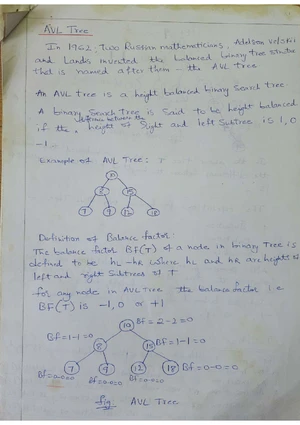 AVL Tree
In 1962. Two Russian mathematicians, Adelson
and Landis invented the balanced binary tree structure
that is named after them - the AVL tree
An AVL tree is a height balanced binary search tree.
A binary search tree is said to be height balanced
difference between the
if the height of right and left subtree is 1, 0
-1.
Example of AVL Tree:
10
7 9 12 18
Definition of Balance factor:
The balance factor BF(T) of a node in binary Tree is
defined to be hL-hR where hL and hR are heights of
left and right subtrees of T
for any node in AVL tree the balance factor i.e
BF(T) is -1, 0 or +1
10 Bf = 2-2=0
Bf=1-1=0
8 15 Bf=1-1=0
7 9 12 18 Bf=0-0=0
Bf=0-0=0 Bf=0-0=0 Bf=0-0=0
fig AVL Tree